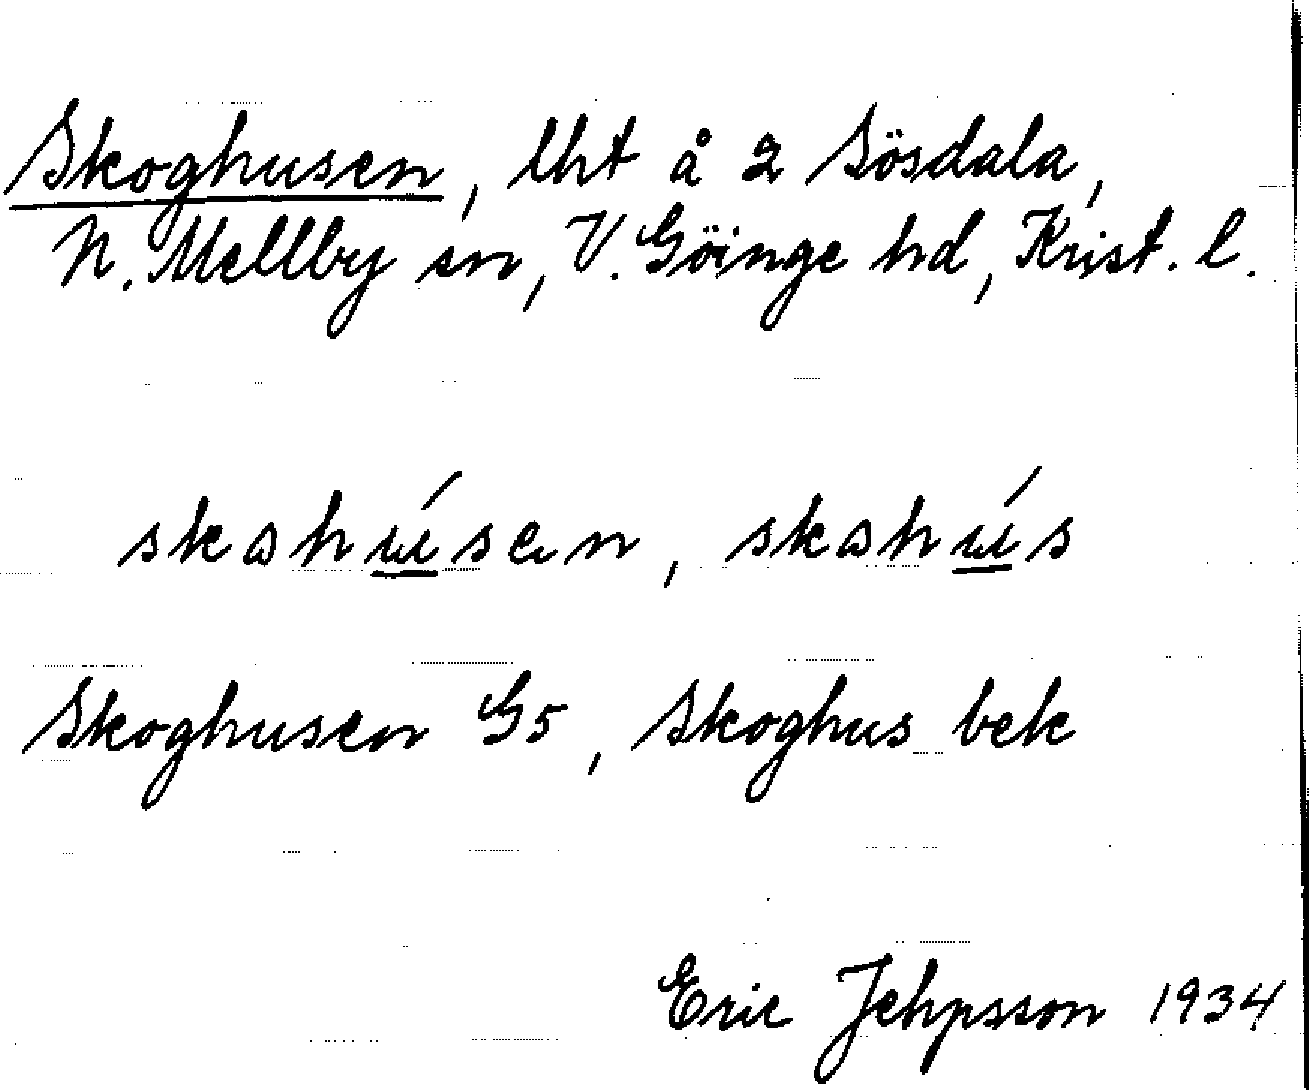 Skoghusen, lht å 2 Sösdala,
N. Mellby sn, V. Göinge hd, Krist. l.
Skoghusen G5, Skoghus bek
Eric Jehpsson 1934